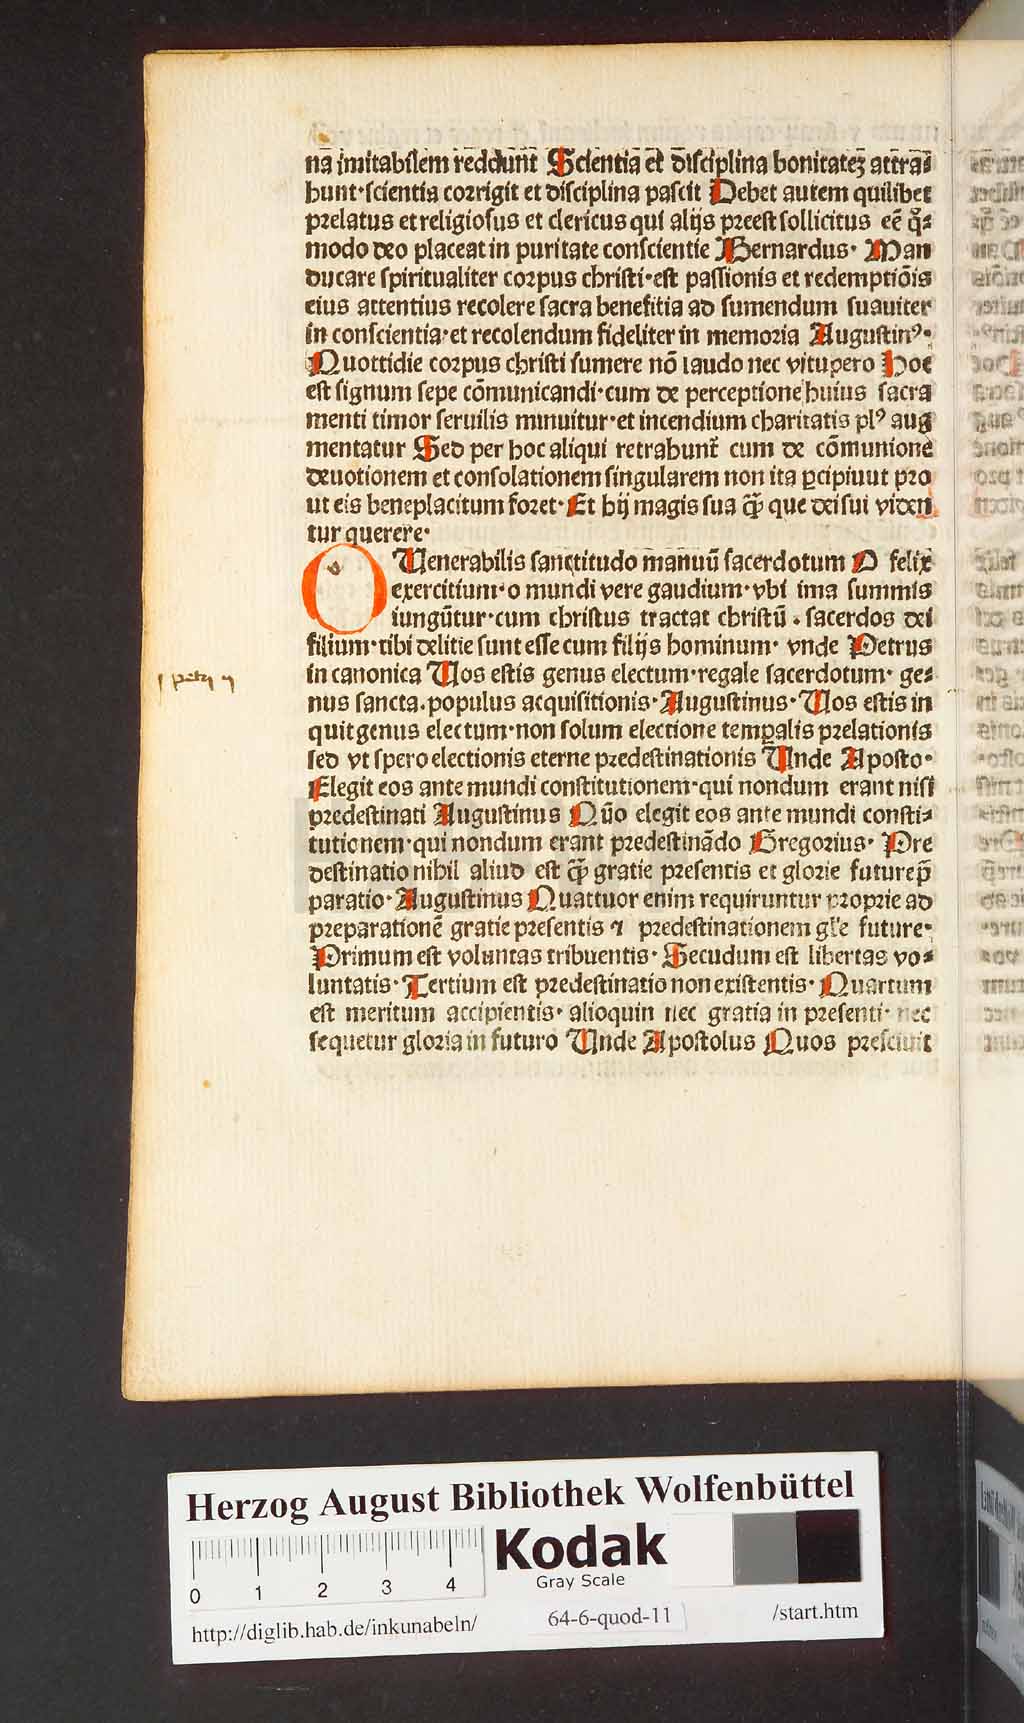 na imitabilem reddunt Scientia et disciplina bonitateꝫ attra⸗
hunt·scientia corrigit et disciplina pascit Debet autem quilibet
prelatus et religiosus et clericus qui alijs preest sollicitus eē ꝙ̄⸗
modo deo placeat in puritate conscientie Bernardus· Man
ducare spiritualiter corpus christi·est passionis et redemptiōis
eius attentius recolere sacra benefitia ad sumendum suauiter
in conscientia·et recolendum fideliter in memoria Augustinꝰ·
Quottidie corpus christi sumere nō laudo nec vitupero Hoc
est signum sepe cōmunicandi·cum de perceptione huius sacra
menti timor seruilis minuitur·et incendium charitatis plꝰ aug
mentatur Sed per hoc aliqui retrahunt̄ cum de cōmunione
deuotionem et consolationem singularem non ita ꝑcipiuut pro
ut eis beneplacitum foret· Et hij magis sua ꝙ̄ que dei sui viden
tur querere·
O Uenerabilis sanctitudo manuū sacerdotum O felix
exercitium·o mundi vere gaudium·vbi ima summis
iungūtur·cum christus tractat christū·sacerdos dei
filium·tibi delitie sunt esse cum filijs hominum· vnde Petrus
in canonica Uos estis genus electum·regale sacerdotum· ge⸗
nus sancta·populus acquisitionis·Augustinus·Uos estis in
quit genus electum·non solum electione temꝑalis prelationis
sed vt spero electionis eterne predestinationis Unde Aposto·
Elegit eos ante mundi constitutionem·qui nondum erant nisi
predestinati Augustinus Quō elegit eos ante mundi consti⸗
tutionem·qui nondum erant predestinādo Gregorius· Pre
destinatio nihil aliud est ꝙ̄ gratie presentis et glorie future p̄
paratio·Augustinus Quattuor enim requiruntur proprie ad
preparationē gratie presentis ⁊ predestinationem gl̄e future·
Primum est voluntas tribuentis· Secudum est libertas vo⸗
luntatis·Tertium est predestinatio non existentis· Quartum
est meritum accipientis· alioquin nec gratia in presenti· nec
sequetur gloria in futuro Unde Apostolus Quos presciuit
Herzog August Bibliothek Wolfenbüttel
Kodak
Gray Scale
0 1 2 3 4
http://diglib.hab.de/inkunabeln/ 64-6-quod-11 /start.htm